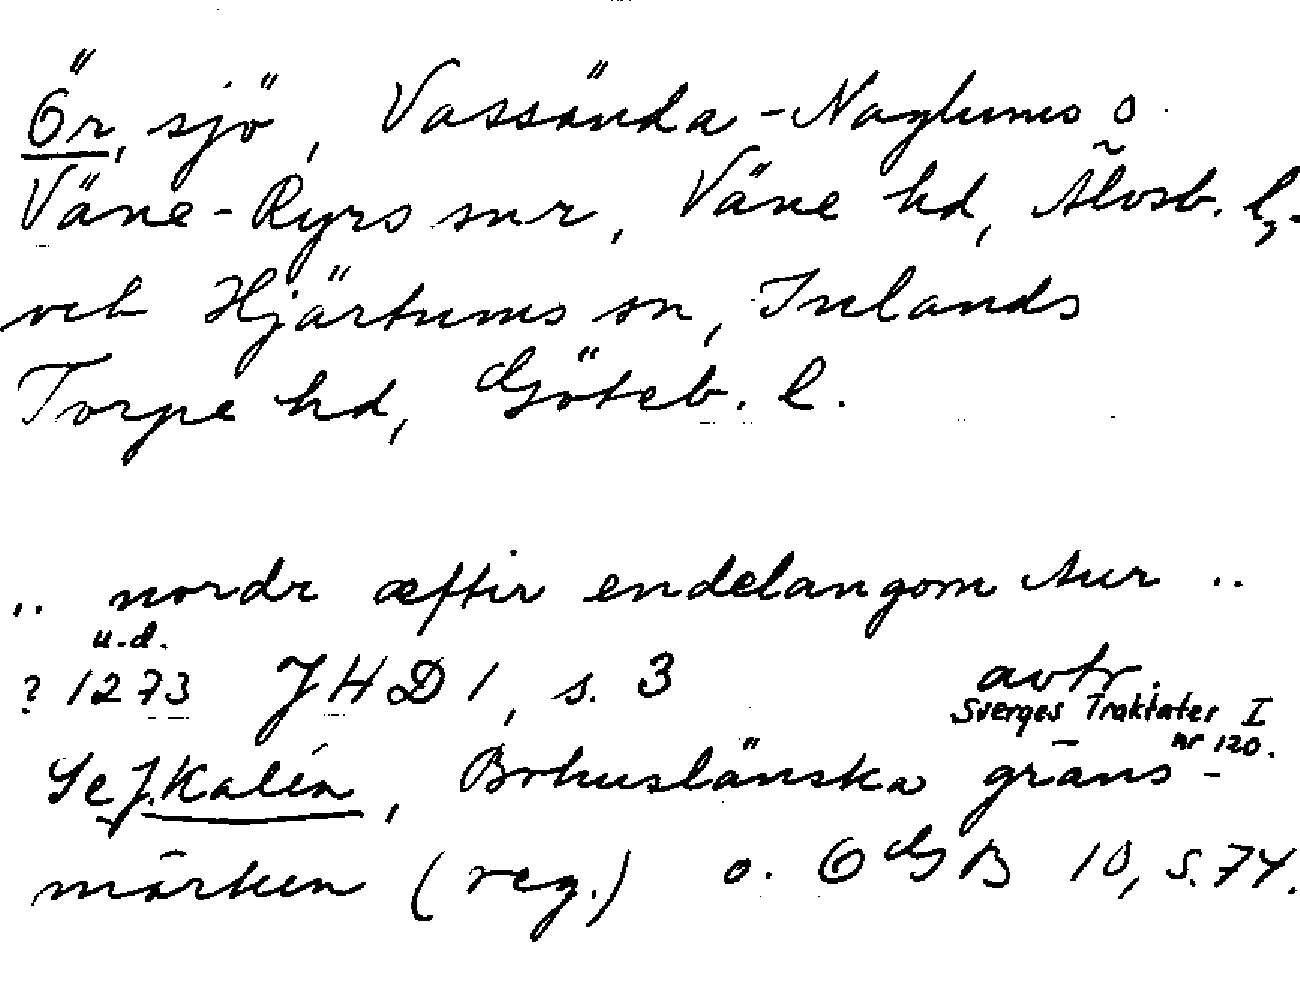 Ör, sjö, Vassända-Naglums o
Väne-Ryrs snr, Väne hd, Älvsb. l.,
och Hjärtums sn, Inlands
Torpe hd, Göteb. l.
.. nordr æftir endelangom Aur ..
u.d.
? 1273 JHD 1, s. 3 avtr.
Sverges Traktater I
nr 120.
Se J. Kalén, Bohuslänska gräns-
märken (reg.) o. OGB 10, s. 74.